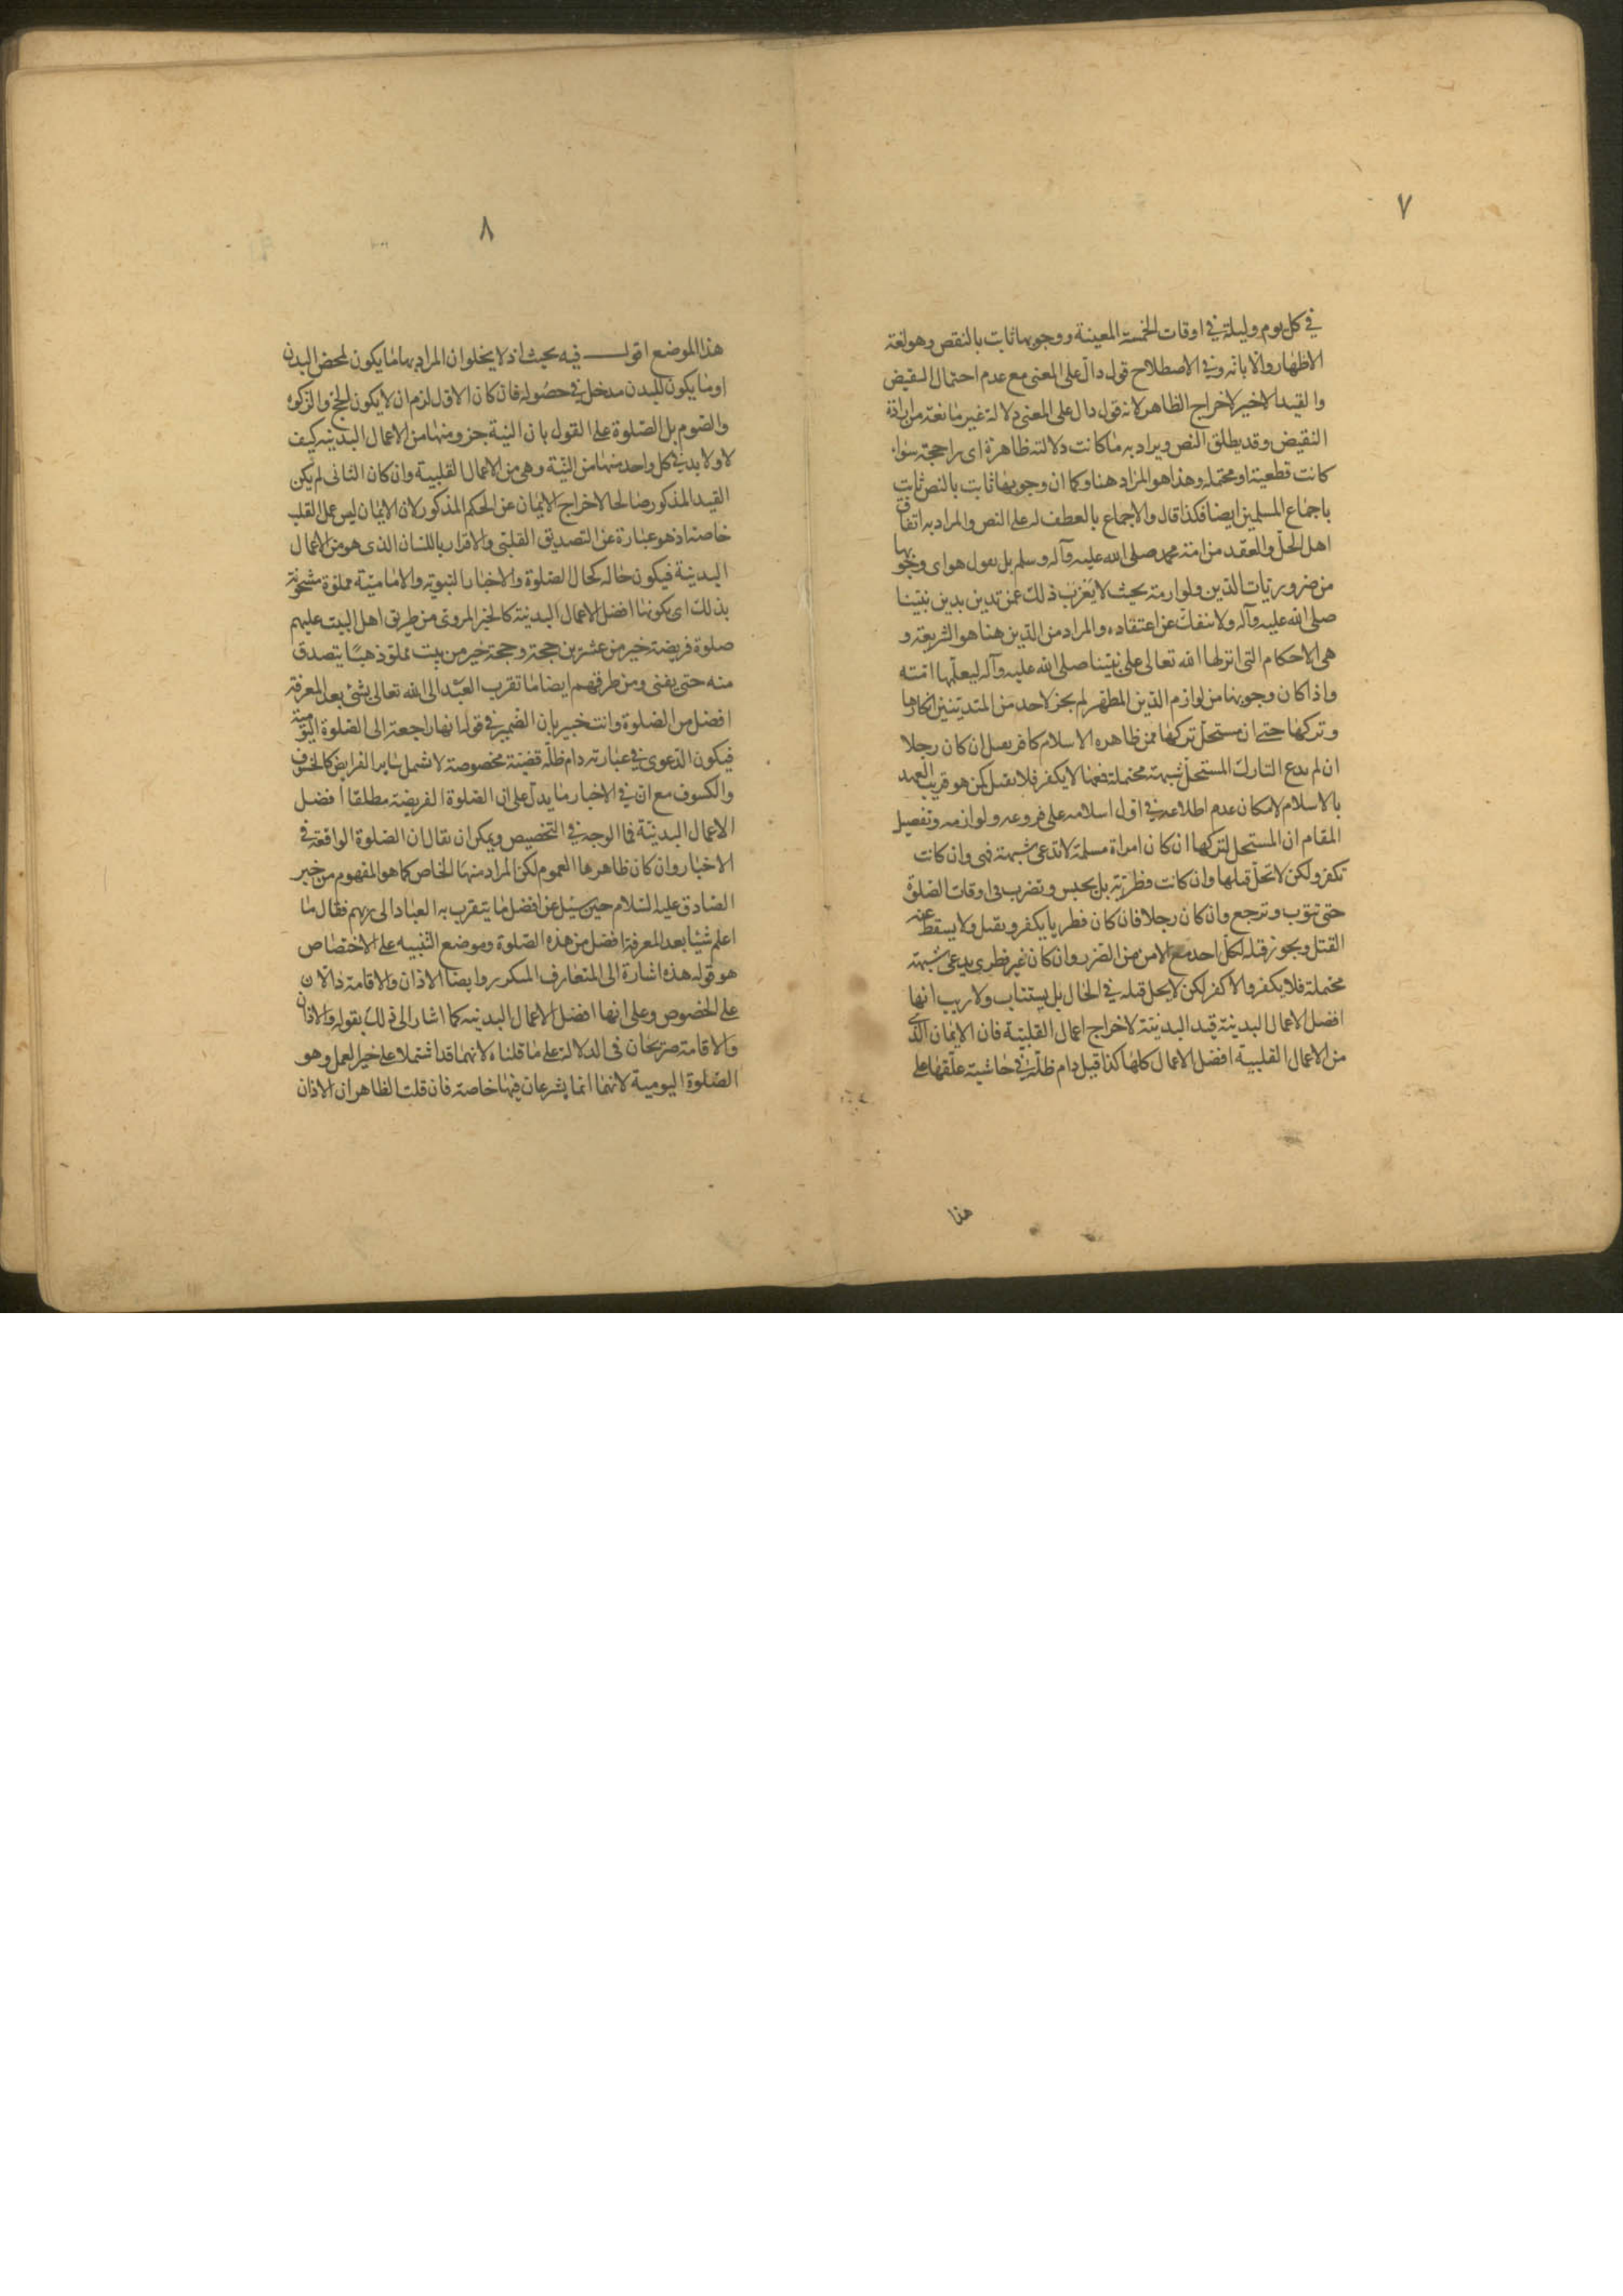 ٧
في كل يوم وليلة في اوقات الخمسة المعينة ووجوبها ثابت بالنص وهو لغة
الاظهار والابانة وفي الاصطلاح قول دال على المعنى مع عدم احتمال النقيض
والقيد الاخير لاخراج الظاهر لانه قول دال على المعنى دلالة غير مانعة من ارادة
النقيض وقد يطلق النص ويراد به ما كانت دلالته ظاهرة اى راجحة سواء
كانت قطعية او محتملة وهذا هو المراد هنا وكما ان وجوبها ثابت بالنص ثابت
باجماع المسلمين ايضا فكذا قال والاجماع بالعطف له على النص والمراد به اتفاق
اهل الحل والعقد من امة محمد صلى الله عليه وآله وسلم بل نقول هو اى وجوبها
من ضروريات الدين ولوازمه بحيث لا يعزب ذلك عمن تدين بدين نبينا
صلى الله عليه وآله ولا ينفك عن اعتقاده والمراد من الدين هنا هو الشريعة و
هى الاحكام التى انزلها الله تعالى على نبينا صلى الله عليه وآله ليعلمها امته
واذا كان وجوبها من لوازم الدين المطهر لم يجز لاحد من المتدينين انكارها
وتركها حتى ان مستحل تركها ممن ظاهره الاسلام كافر يقتل ان كان رجلا
ان لم يدع التارك المستحل شبهة محتملة فهنا لا يكفر فلا يقتل كمن هو قريب العهد
بالاسلام لامكان عدم اطلاعه في اول اسلامه على فروعه ولوازمه وتفصيل
المقام ان المستحل لتركها ان كان امراة مسلمة لا تدعى شبهة فهى وان كانت
تكفر ولكن لا تحل قتلها وان كانت فطرية بل يحبس وتضرب فى اوقات الصلوة
حتى تتوب وترجع وان كان رجلا فان كان فطريا يكفر ويقتل ولا يسقط عنه
القتل ويجوز قتله لكل احد مع الامن من الضرر وان كان غير فطرى يدعى شبهة
محتملة فلا يكفر والا كفر لكن لا يحل قتله في الحال بل يستتاب ولا ريب انها
افضل الاعمال البدنية قيد البدنية لاخراج اعمال القلبية فان الايمان الذى
من الاعمال القلبية افضل الاعمال كلها كذا قيل دام ظله في حاشية علقها على
هذا
٨
هذا الموضع اقول فيه بحث اذ لا يخلو ان المراد بها ما يكون لمحض البدن
او ما يكون للبدن مدخل في حصوله فان كان الاول لزم ان لا يكون الحج والزكوة
والصوم بل الصلوة على القول بان النية جزو منها من الاعمال البدنية كيف
لا ولا بد في كل واحد منها من النية وهى من الاعمال القلبية وان كان الثانى لم يكن
القيد المذكور صالحا لاخراج الايمان عن الحكم المذكور لان الايمان ليس عمل القلب
خاصة اذ هو عبارة عن التصديق القلبى والاقرار باللسان الذى هو من الاعمال
البدنية فيكون حاله كحال الصلوة والاخبار النبوية والامامية مملوة مشحونة
بذلك اى بكونها افضل الاعمال البدنية كالخبر المروى من طريق اهل البيت عليهم
صلوة فريضة خير من عشرين حجة وحجة خير من بيت مملو ذهبا يتصدق
منه حتى يفنى ومن طرقهم ايضا ما تقرب العبد الى الله تعالى بشئ بعد المعرفة
افضل من الصلوة وانت خبير بان الضمير في قوله انها راجعة الى الصلوة اليومية
فيكون الدعوى في عبارته دام ظله قضية مخصوصة لا تشمل ساير الفرايض كالخسوف
والكسوف مع ان في الاخبار ما يدل على ان الصلوة الفريضة مطلقا افضل
الاعمال البدنية فما الوجه في التخصيص ويمكن ان يقال ان الصلوة الواقعة في
الاخبار وان كان ظاهرها العموم لكن المراد منها الخاص كما هو المفهوم من خبر
الصادق عليه السلام حين سئل عن افضل ما يتقرب به العباد الى ربهم فقال ما
اعلم شيئا بعد المعرفة افضل من هذه الصلوة وموضع التنبيه على الاختصاص
هو قوله هذه اشارة الى المتعارف المتكرر وايضا الاذان والاقامة دالان
على الخصوص وعلى انها افضل الاعمال البدنية كما اشار الى ذلك بقوله والاذان
والاقامة صريحان فى الدلالة على ما قلناه لانهما قد اشتملا على خير العمل وهو
الصلوة اليومية لانهما انما يشرعان فيها خاصة فان قلت الظاهر ان الاذان